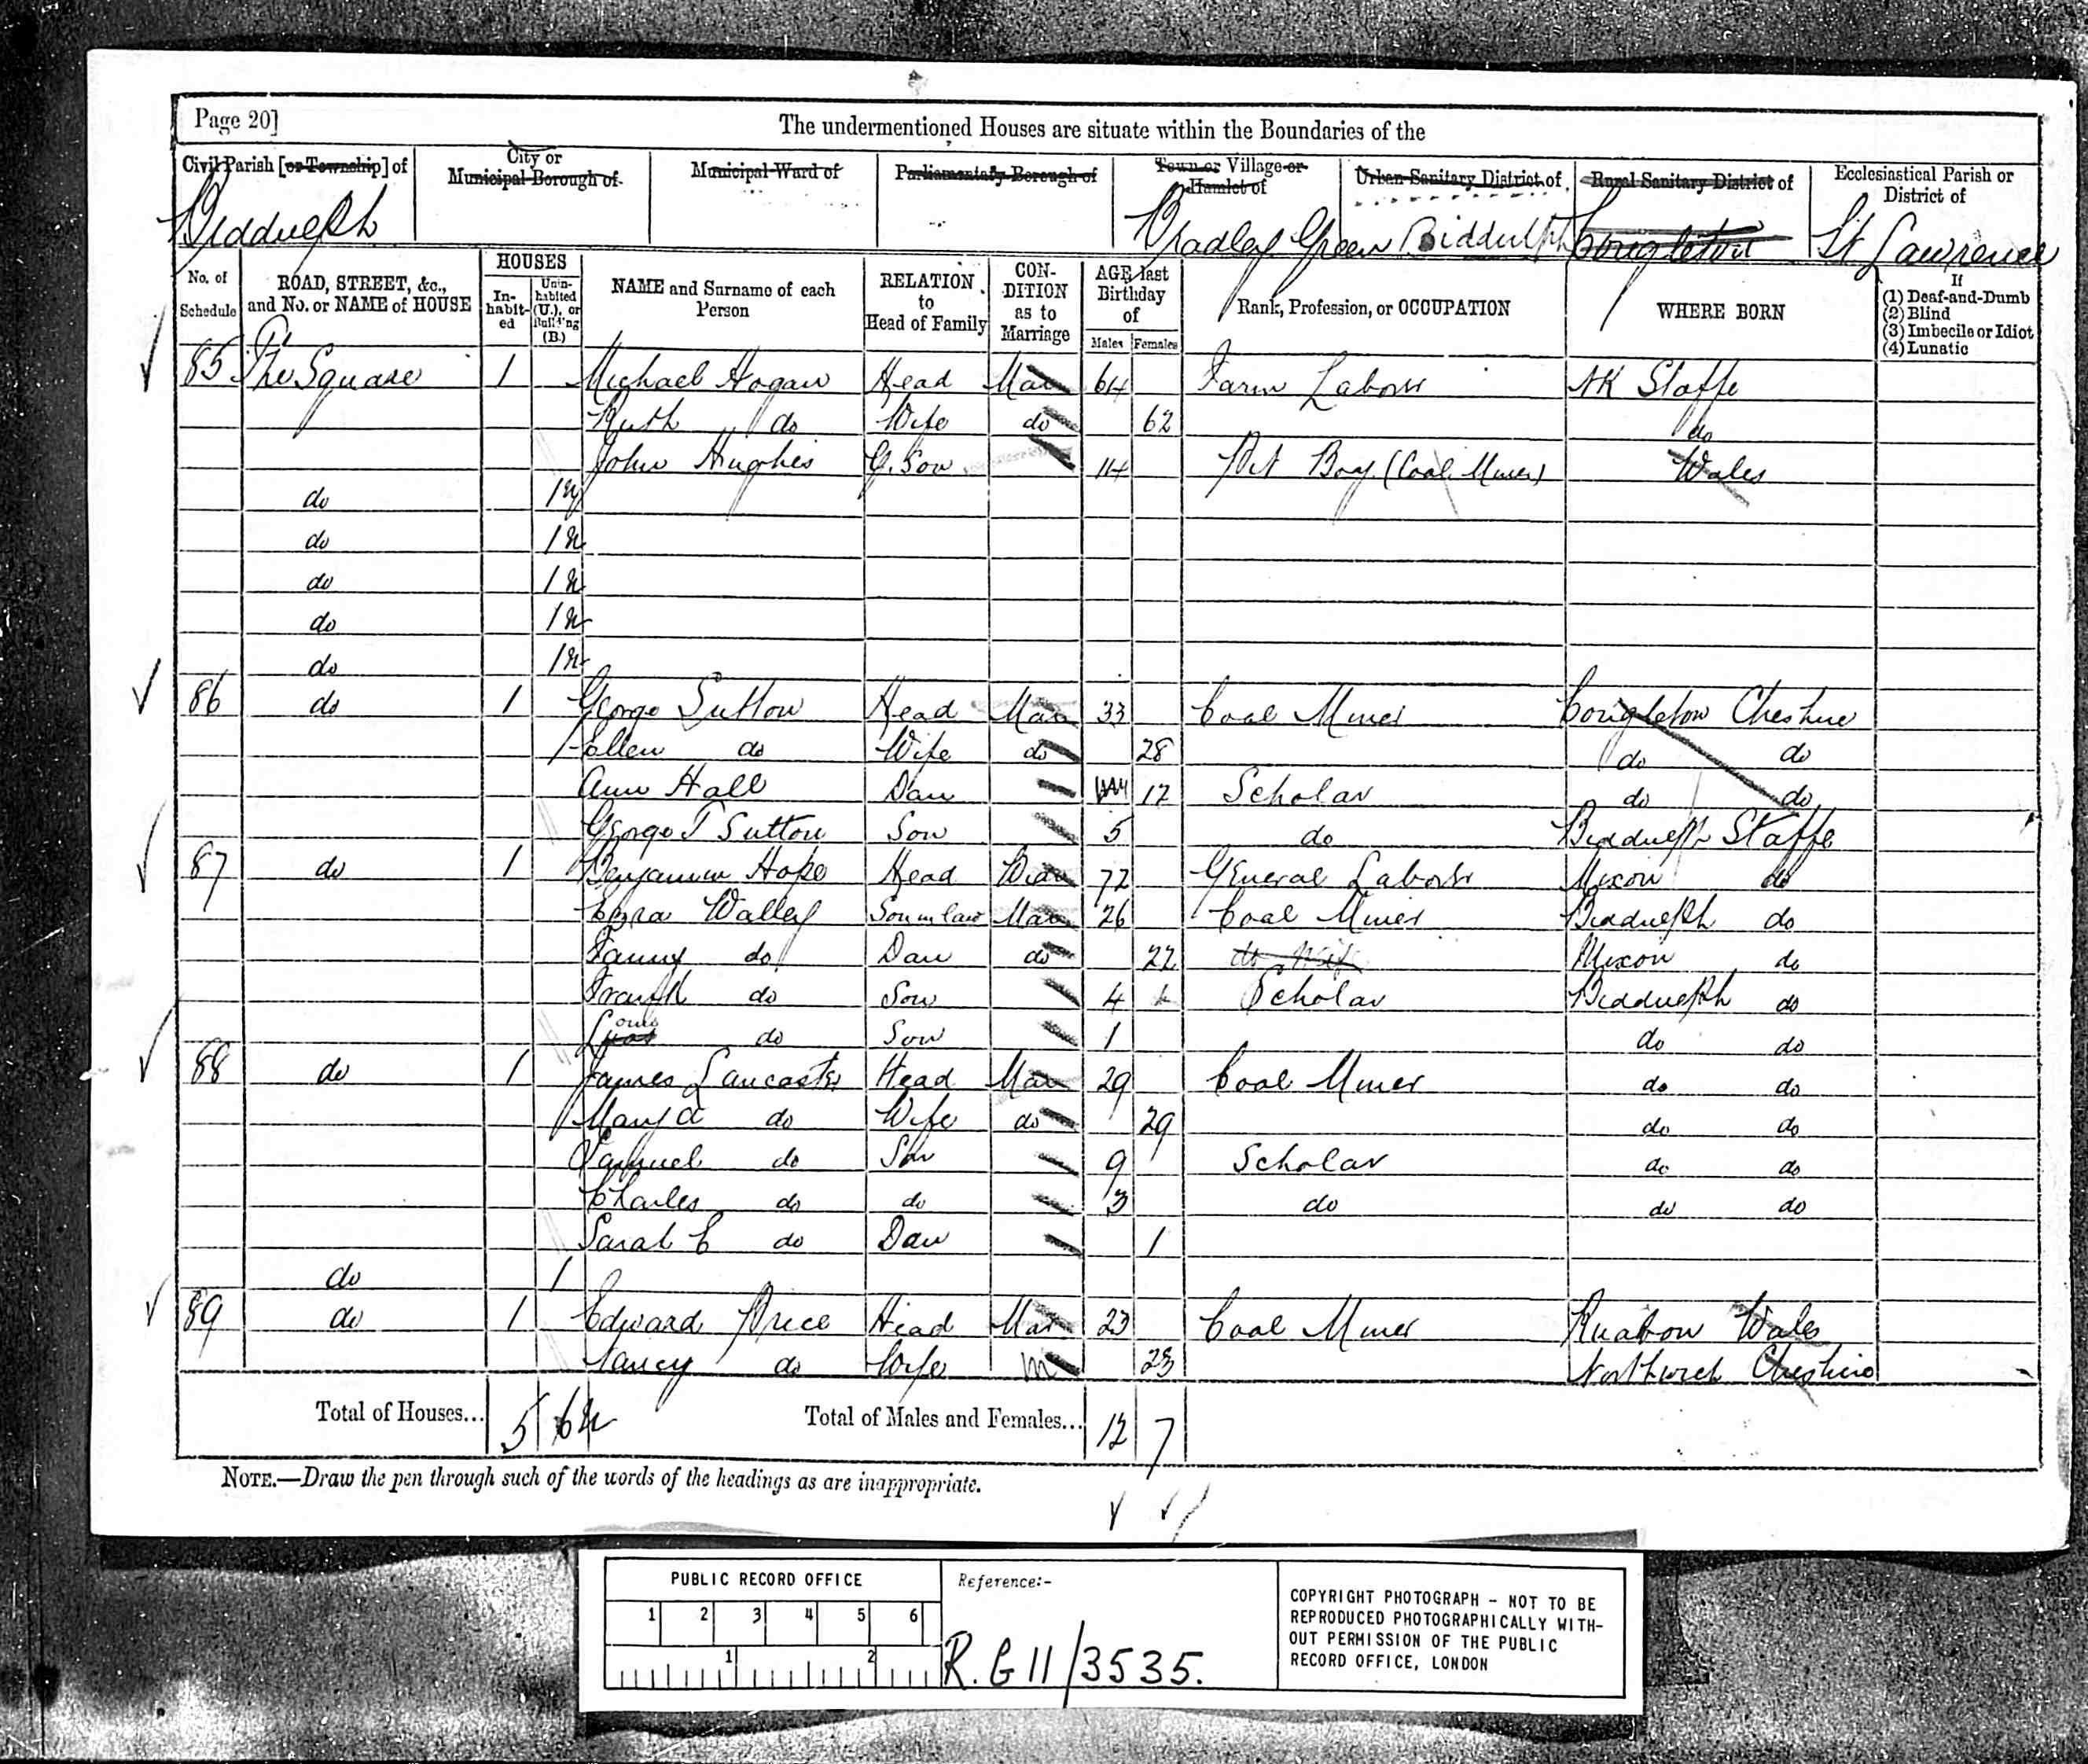 Page 20]
The undermentioned Houses are situate within the Boundaries of the
Civil Parish [or Township] of
City or Municipal Borough of
Municipal Ward of
Parliamentary Borough of
Town or Village or Hamlet of
Urban Sanitary District of
Rural Sanitary District of
Ecclesiastical Parish or District of
Biddulph Bradley Green Biddulph Congleton St Lawrence
No. of Schedule
ROAD, STREET, &c., and No. or NAME of HOUSE
HOUSES
In-habit-ed
Unin-habited (U.), or Building (B.)
NAME and Surname of each Person
RELATION to Head of Family
CON-DITION as to Marriage
AGE last Birthday of
Males Females
Rank, Profession, or OCCUPATION
WHERE BORN
If
(1) Deaf-and-Dumb
(2) Blind
(3) Imbecile or Idiot
(4) Lunatic
85 The Square 1 Michael Hogan Head Mar 64 Farm Labour NK Staffs
Ruth do Wife do 62 do
John Hughes G. Son 14 Pit Boy (Coal Miner) Wales
do 1 u
do 1 u
do 1 u
do 1 u
do 1 u
86 do 1 George Sutton Head Mar 33 Coal Miner Congleton Cheshire
Ellen do Wife do 28 do do
Ann Hall Dau 12 Scholar do do
George T Sutton Son 5 do Biddulph Staffs
87 do 1 Benjamin Hope Head Widr 72 General Labour Mixon do
Ezra Walley Son in law Mar 26 Coal Miner Biddulph do
Fanny do Dau do 22 do Wife Mixon do
Frank do Son 4 Scholar Biddulph do
do Son 1 do do
88 do 1 James Lancaster Head Mar 29 Coal Miner do do
Mary A do Wife do 29 do do
Samuel do Son 9 Scholar do do
Charles do do 3 do do do
Sarah E do Dau 1
do 1
89 do 1 Edward Price Head Mar 23 Coal Miner Ruabon Wales
Nancy do Wife m 23 Northwich Cheshire
Total of Houses... 5 6 u Total of Males and Females... 12 7
NOTE.—Draw the pen through such of the words of the headings as are inappropriate.
PUBLIC RECORD OFFICE
1 2 3 4 5 6
1 2
Reference:-
R.G 11/3535.
COPYRIGHT PHOTOGRAPH - NOT TO BE
REPRODUCED PHOTOGRAPHICALLY WITH-
OUT PERMISSION OF THE PUBLIC
RECORD OFFICE, LONDON